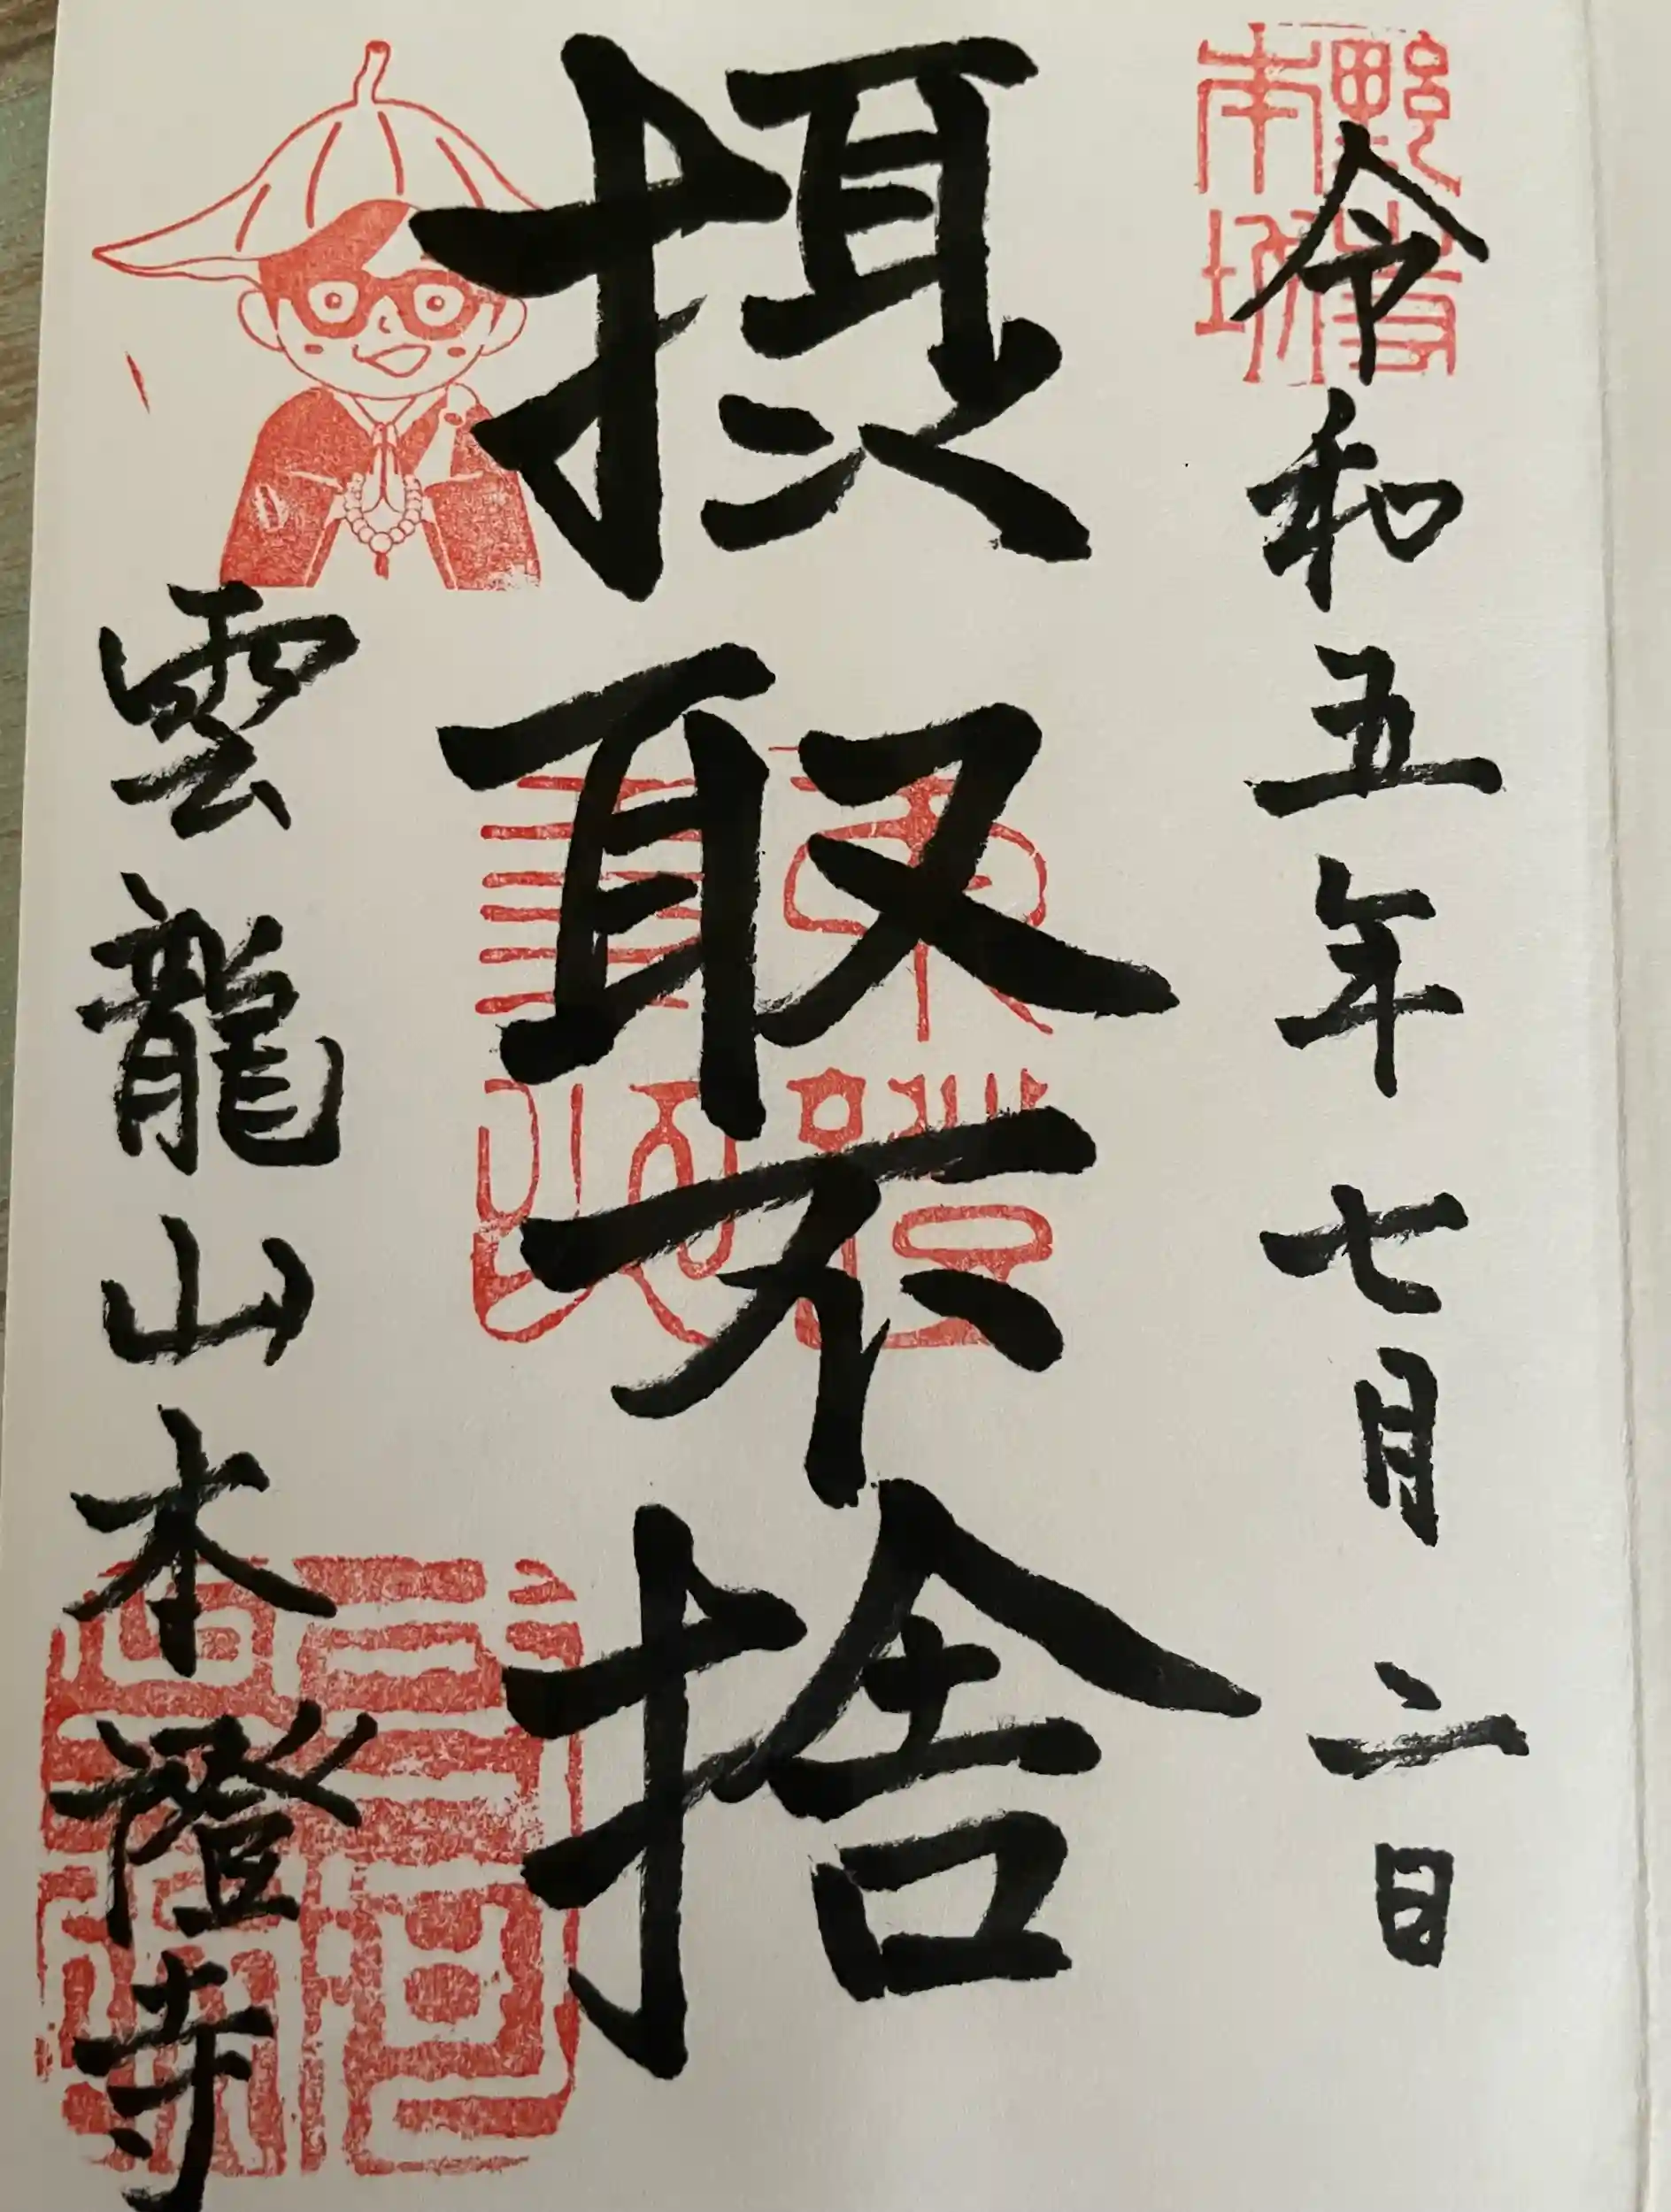 令和五年七月二日
摂取不捨
雲龍山本澄寺